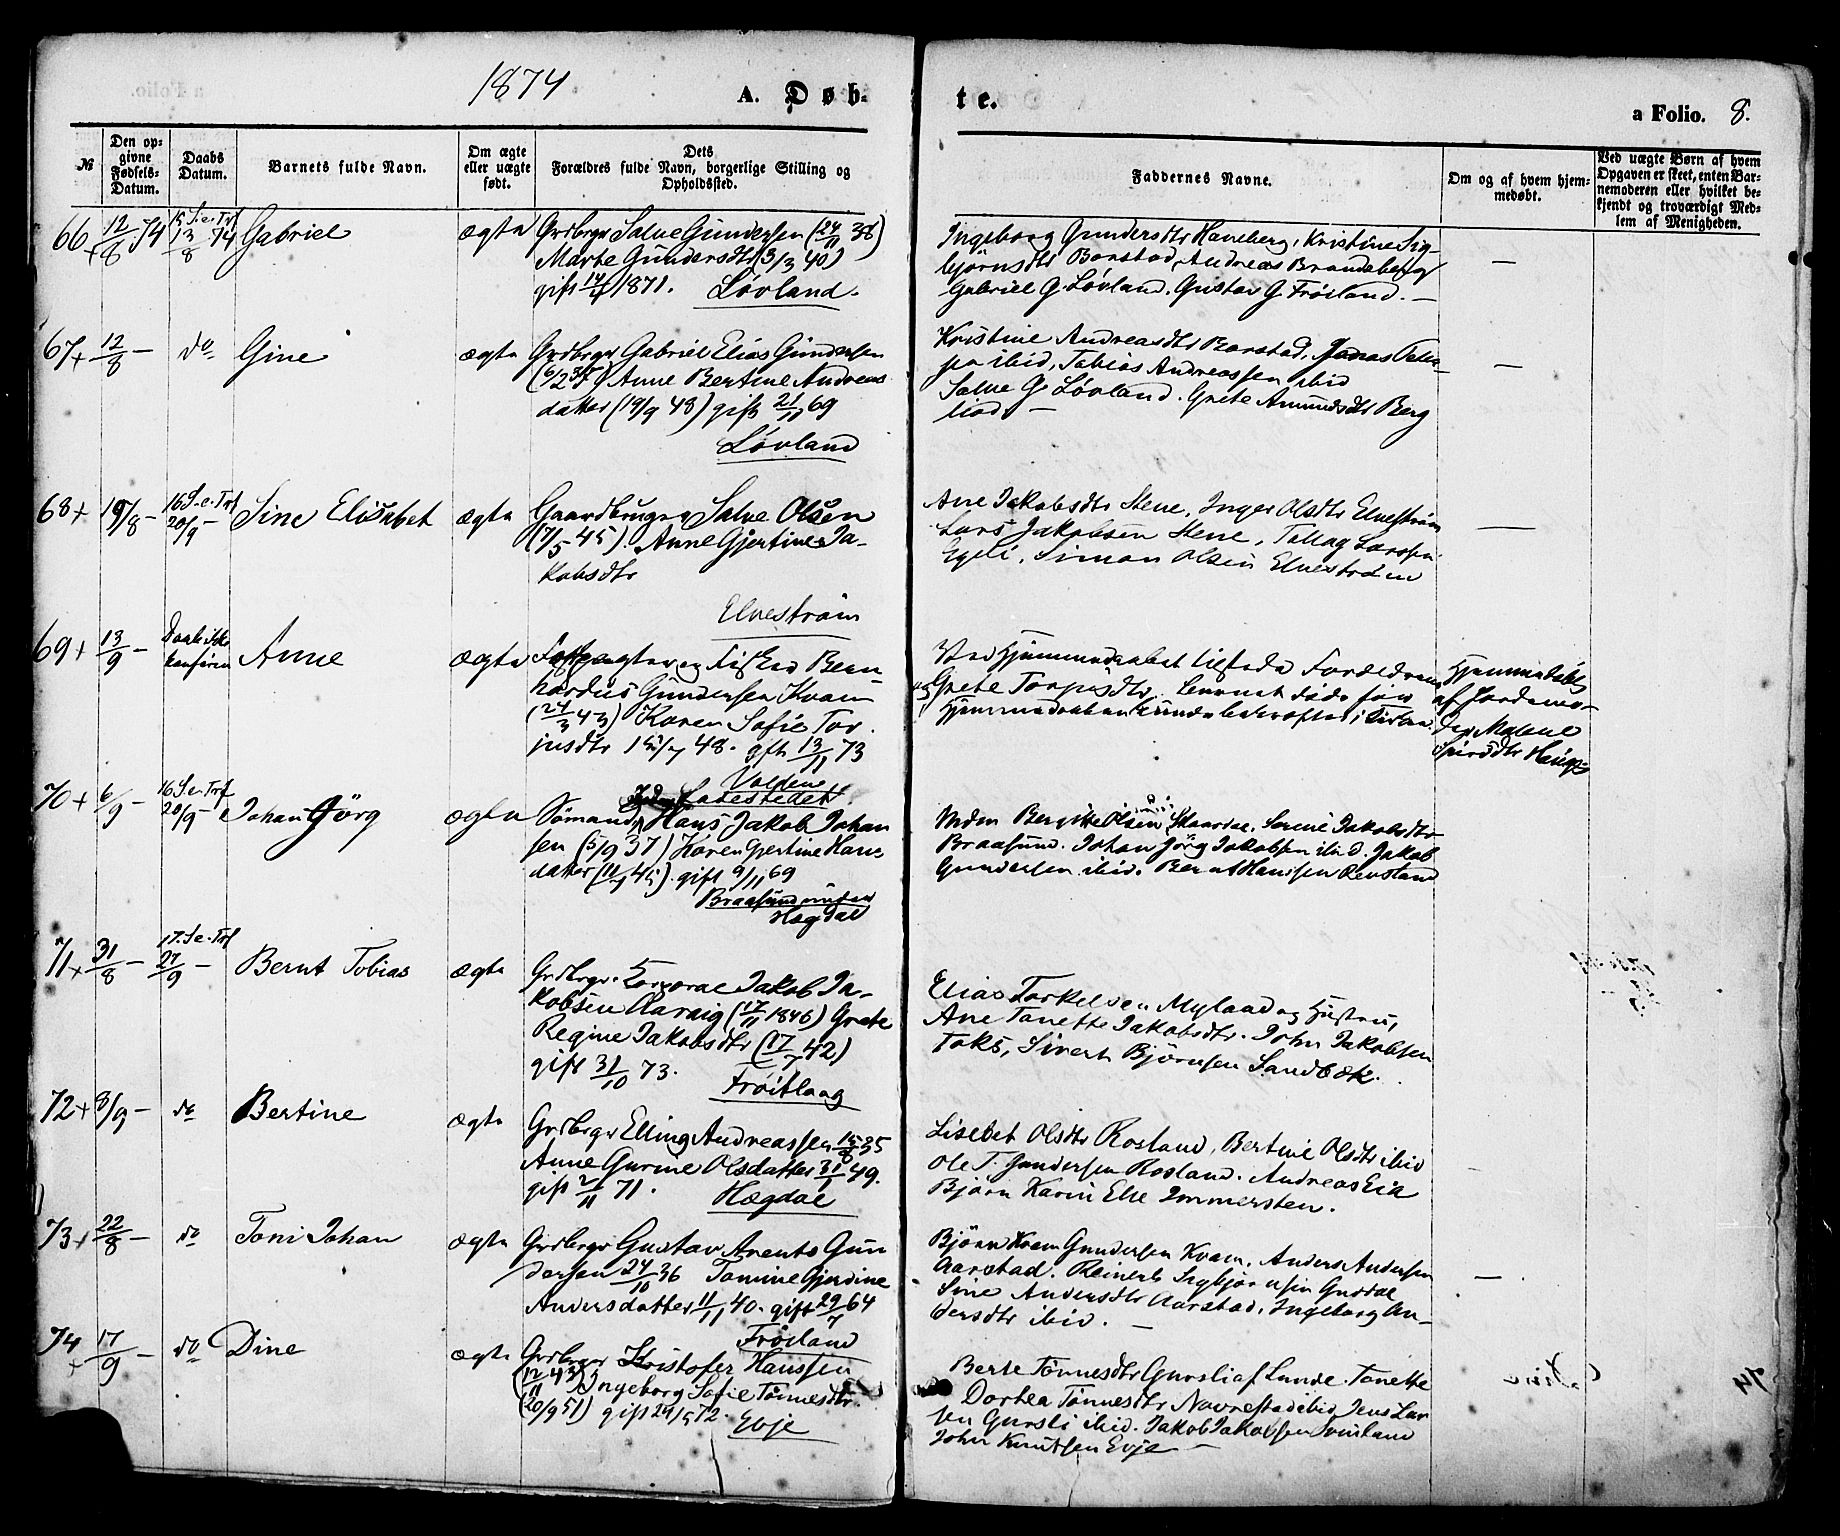 1874
A. Døb-
te.
a Folio. 8.
№
Den op-
givne
Fødsels-
Datum.
Daabs
Datum.
Barnets fulde Navn.
Om ægte
eller uægte
født.
Dets
Forældres fulde Navn, borgerlige Stilling og
Opholdssted.
Faddernes Navne.
Om og af hvem hjem-
medøbt.
Ved uægte Børn af hvem
Opgaven er skeet, enten Bar-
nemoderen eller hvilket be-
kjendt og troværdigt Med-
lem af Menigheden.
66 + 12/8 74 15 S. e. Trf 13/8 74 Gabriel ægte Grdbrgr Salve Gundersen (24/11 38)
Marte Gundersdtr (3/3 40)
gift 14/4 1871. Løvland.
Ingeborg Gundersdtr Haneberg, Kristine Sig-
bjørnsdtr Borstad, Andreas Brandsberg
Gabriel G. Løvland. Gustav G Frøiland. —
67 + 12/8 — do Gine ægte Grdbrgr Gabriel Elias Gundersen
Anne Bertine Andreas
datter (19/9 48) gift 21/11 69
Løvland
Kristine Andreasdtr Borstad, Jonas
ibid, Tobias Andreassen ibid
Salve G. Løvland. Grete Amundsdtr Berg
ibid —
68 + 19/8 — 16 S. e. Trf 20/9 — Sine Elisabet ægte Gaardbruger Salve Olsen
(17/5 45). Anne Gjertine Ja-
kobsdtr
Elvestrøm
Ane Jakobsdtr Stene, Inger Olsdtr Elvestrøm
Lars Jakobsen Stene, Tallag Larssen
Egeli, Simon Olsen Elvestrøm
69 + 13/9 — Anne ægte og Bern-
hardus Gundersen Kvam
(24/3 43) Karen Sofie Tor-
jusdtr 48. gift 13/11 73
Valdene
Ladestedet
Ved Hjemmedaabet Forældrene
og Grete Torjusdtr. Barnet døde før
Hjemmedaaben kunde bekræftes i Kirken
Hjemmedøbt
af Jordemo-
der Malene
70 + 6/9 — 16 S. e. Trf 20/9 — Johan Jörg ægte Sømand Hans Jakob Johan
sen (5/9 37) Karen Gjertine Hans
datter 45). gift 9/11 69
Braasund
Hægdal
Mdm Bergitte Olsen, Skaardal, Serine Jakobsdtr
Braasund. Johan Jörg Jakobsen ibid. Jakob
Gundersen ibid. Bernt Hanssen Røvsland
71 + 31/8 — 17. S. e. Trf 27/9 — Bernt Tobias ægte Grdbrgr Korporal Jakob Ja-
kobsen Aarvig (17/11 1846) Grete
Regine Jakobsdtr (17/7 42)
gift 31/10 73. Frøitlaag
Elias Torkelsen Myland og Hustru,
Ane Tonette Jakobsdtr. John Jakobsen
Foks, Sivert Bjørnsen Sandbæk.
72 + 8/9 — do Bertine ægte Grdbrgr Elling Andreassen 35
Anne Gurine Olsdatter 49.
gift 2/11 71. Hægdal
Lisebet Olsdtr Rosland, Bertine Olsdtr ibid
Ole T. Gundersen Rosland. Andreas Eik
Bjørn Karin Else Ommersten.
73 + 22/8 — do Toni Johan ægte Grdbrgr Gustav Arents Gun
dersen 24/10 36 Tomine Gjerdine
Andersdatter 11/11 40. gift 29/7 64
Frøiland
Bjørn Kvam Gundersen Kvam. Anders Andersen
Aarstad. Reinert Sigbjørnsen
Sine Andersdtr Aarstad, Ingeborg An-
dersdtr ibid. —
74 + 17/9 — do Dine ægte Grdbrgr Kristofer Hanssen
(12/11 43) Ingeborg Sofie Tønnesdtr
(20/9 51) gift 24/5 72. Evje
Berte Tønnesdtr Gursli af Lunde. Tonette
Dortea Tønnesdtr Navrestad ibid Jens Lar
sen Gursli ibid. Jakob Jakobsen Svinland
John Knutsen Evje —